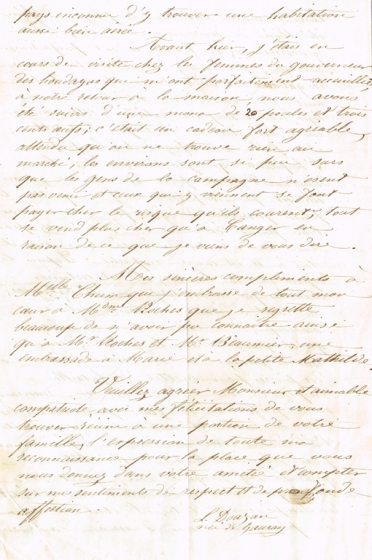 pays inconnu d'y trouver une habitation
aussi bien aérée.
Avant hier, j'étais en
cours de visite chez les femmes du gouverneur
des qui m'ont parfaitement accueillie,
à notre retour à la maison, nous avons
été suivis d'une mona de 20 poules et trois
cents œufs; c'était un cadeau fort agréable,
attendu qu'on ne trouve rien au
marché; les environs sont si peu surs
que les gens de la campagne n'osent
pas venir et ceux qui y viennent se font
payer cher le risque qu'ils courent; tout
se vend plus cher qu'à Tanger en
raison de ce que je viens de vous dire.
Mes sincères compliments à
Melle que j'embrasse de tout mon
cœur à Mdme Roches que je regrette
beaucoup de n'avoir pu connaître ainsi
qu'à Mr Roches et Mr Beaumier, une
embrassade à Marie et à la petite Mathilde.
Veuillez agréer Monsieur et aimable
compatriote, avec mes félicitations de vous
trouver réuni à une portion de votre
famille, l'expression de toute ma
reconnaissance pour la place que vous
nous donnez dans votre amitié et compter
sur mes sentiments de respect et de profonde
affection.
L.
née de